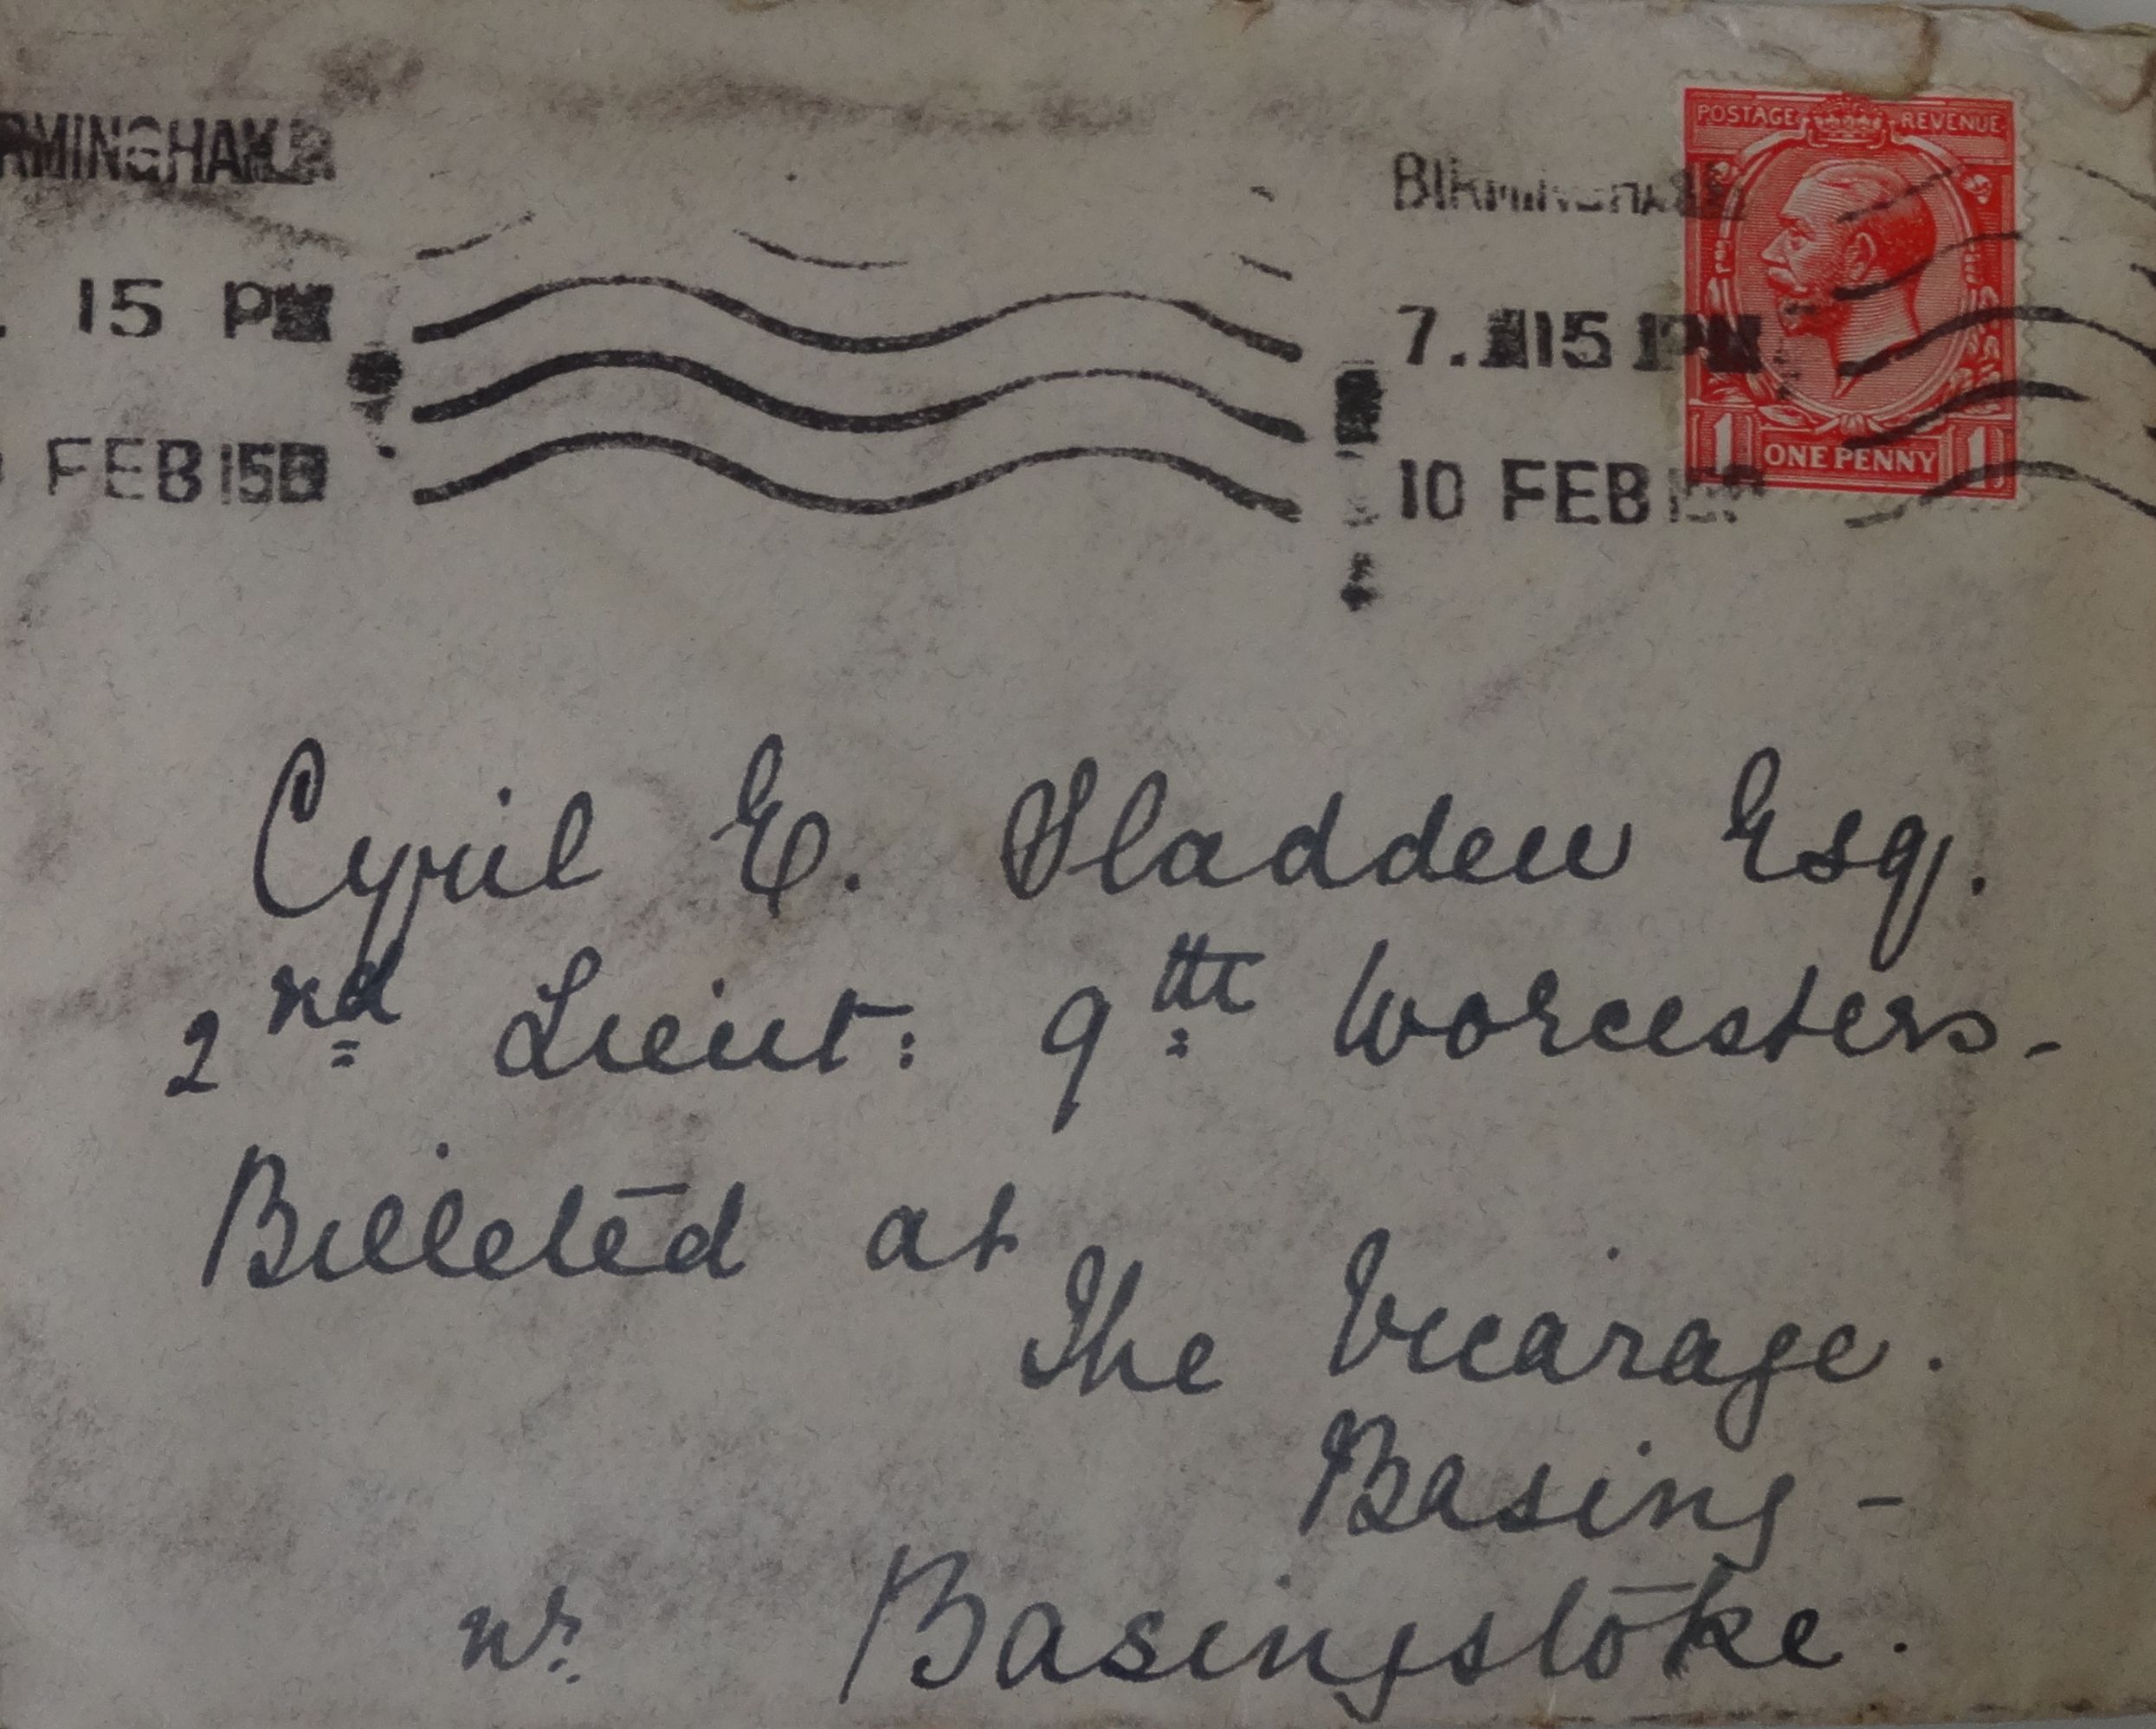 POSTAGE REVENUE
RMINGHAM
BIRMINGHAM
15 PM
7. 15 PM
FEB 15
10 FEB
1 ONE PENNY 1
Cyril E. Sladden Esq.
2nd Lieut: 9th Worcesters.
Billeted at
The Vicarage.
Basing -
nr. Basingstoke.